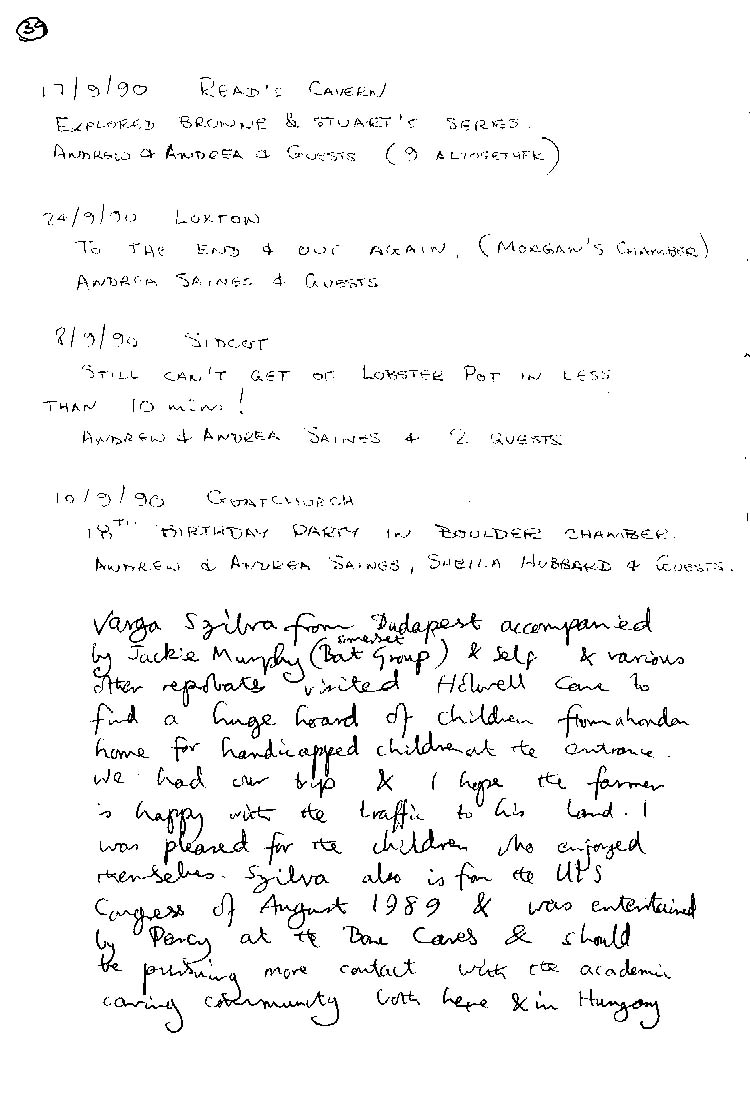 39
17/9/90 READ'S CAVERN
EXPLORED BROWNE & STUART'S SERIES.
ANDREW & ANDREA & GUESTS (9 ALTOGETHER)
24/9/90 LOXTON
TO THE END & OUT AGAIN. (MORGAN'S CHAMBER)
ANDREA SAINES & GUESTS
8/9/90 SIDCOT
STILL CAN'T GET OF LOBSTER POT IN LESS
THAN 10 mins!
ANDREW & ANDREA SAINES & 2 GUESTS
10/9/90 GOATCHURCH
18TH BIRTHDAY PARTY IN BOULDER CHAMBER.
ANDREW & ANDREA SAINES, SHEILA HUBBARD & GUESTS.
Varga Szilva from Budapest accompanied
by Jackie Murphy (Somerset Bat Group) & self & various
other reprobates visited Holwell Cave to
find a huge hoard of children from a london
home for handicapped children at the entrance.
We had our trip & I hope the farmer
is happy with the traffic to his land. I
was pleased for the children who enjoyed
themselves. Szilva also is from the UIS
Congress of August 1989 & was entertained
by Percy at the Bone Caves & should
be pursuing more contact with the academic
caving community both here & in Hungary